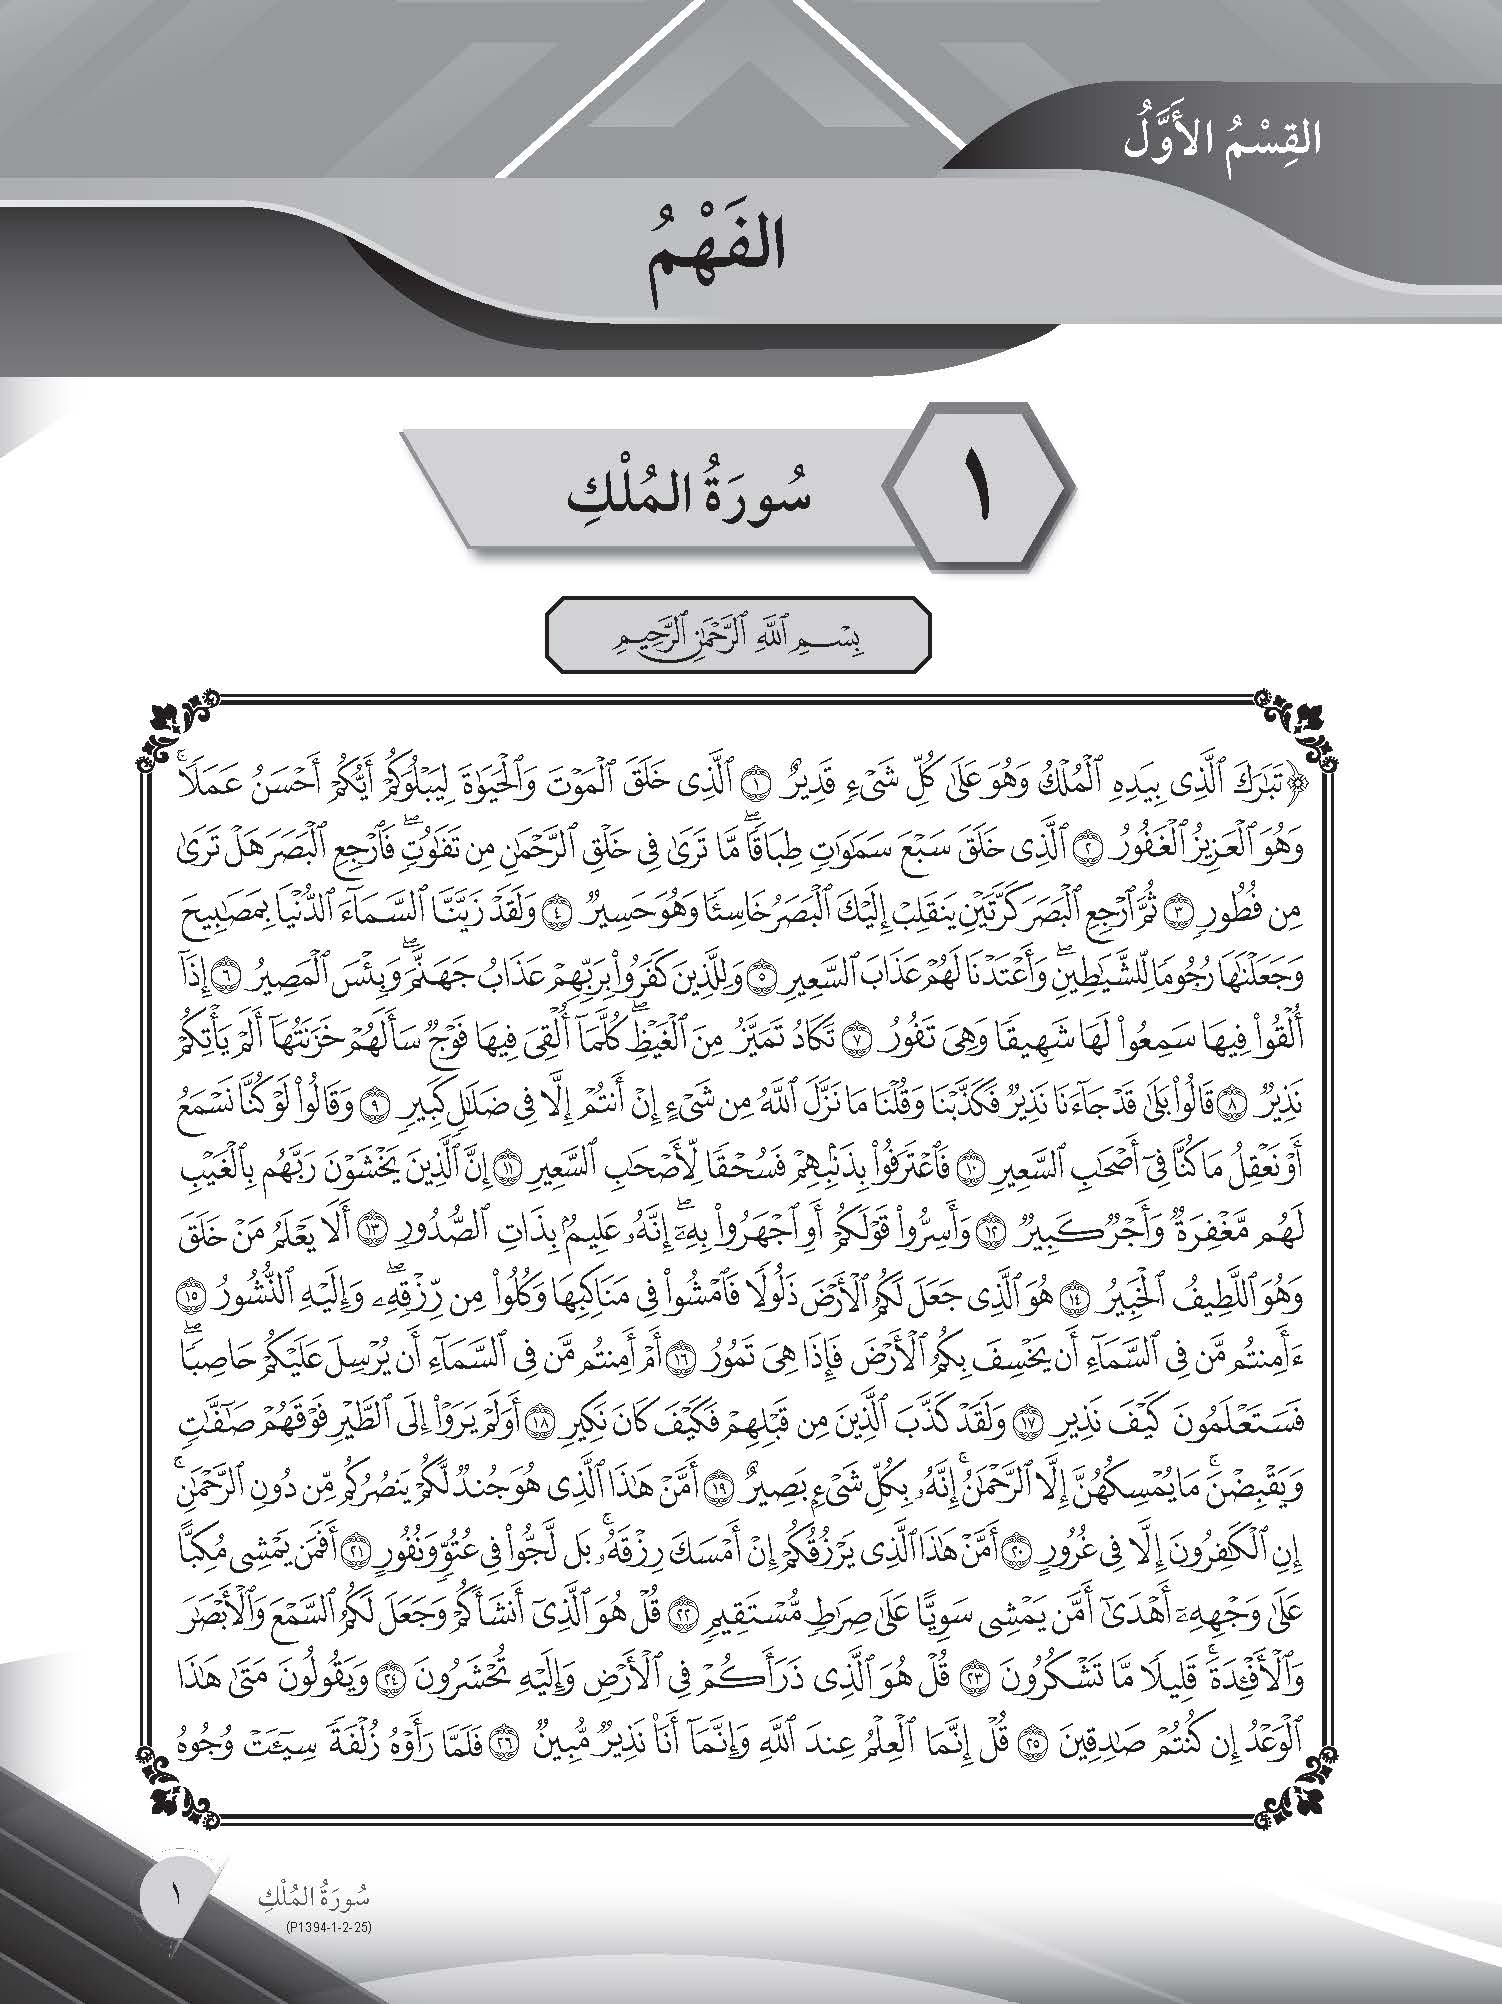 القِسْمُ الأَوَّلُ
الفَهْمُ
١
سُورَةُ المُلْكِ
بِسْمِ ٱللَّهِ ٱلرَّحْمَٰنِ ٱلرَّحِيمِ
﴿تَبَٰرَكَ ٱلَّذِى بِيَدِهِ ٱلْمُلْكُ وَهُوَ عَلَىٰ كُلِّ شَىْءٍ قَدِيرٌ ١ ٱلَّذِى خَلَقَ ٱلْمَوْتَ وَٱلْحَيَوٰةَ لِيَبْلُوَكُمْ أَيُّكُمْ أَحْسَنُ عَمَلًا ۚ
وَهُوَ ٱلْعَزِيزُ ٱلْغَفُورُ ٢ ٱلَّذِى خَلَقَ سَبْعَ سَمَٰوَٰتٍ طِبَاقًا ۖ مَّا تَرَىٰ فِى خَلْقِ ٱلرَّحْمَٰنِ مِن تَفَٰوُتٍ ۖ فَٱرْجِعِ ٱلْبَصَرَ هَلْ تَرَىٰ
مِن فُطُورٍ ٣ ثُمَّ ٱرْجِعِ ٱلْبَصَرَ كَرَّتَيْنِ يَنقَلِبْ إِلَيْكَ ٱلْبَصَرُ خَاسِئًا وَهُوَ حَسِيرٌ ٤ وَلَقَدْ زَيَّنَّا ٱلسَّمَآءَ ٱلدُّنْيَا بِمَصَٰبِيحَ
وَجَعَلْنَٰهَا رُجُومًا لِّلشَّيَٰطِينِ ۖ وَأَعْتَدْنَا لَهُمْ عَذَابَ ٱلسَّعِيرِ ٥ وَلِلَّذِينَ كَفَرُوا۟ بِرَبِّهِمْ عَذَابُ جَهَنَّمَ ۖ وَبِئْسَ ٱلْمَصِيرُ ٦ إِذَآ
أُلْقُوا۟ فِيهَا سَمِعُوا۟ لَهَا شَهِيقًا وَهِىَ تَفُورُ ٧ تَكَادُ تَمَيَّزُ مِنَ ٱلْغَيْظِ ۖ كُلَّمَآ أُلْقِىَ فِيهَا فَوْجٌ سَأَلَهُمْ خَزَنَتُهَآ أَلَمْ يَأْتِكُمْ
نَذِيرٌ ٨ قَالُوا۟ بَلَىٰ قَدْ جَآءَنَا نَذِيرٌ فَكَذَّبْنَا وَقُلْنَا مَا نَزَّلَ ٱللَّهُ مِن شَىْءٍ إِنْ أَنتُمْ إِلَّا فِى ضَلَٰلٍ كَبِيرٍ ٩ وَقَالُوا۟ لَوْ كُنَّا نَسْمَعُ
أَوْ نَعْقِلُ مَا كُنَّا فِىٓ أَصْحَٰبِ ٱلسَّعِيرِ ١٠ فَٱعْتَرَفُوا۟ بِذَنۢبِهِمْ فَسُحْقًا لِّأَصْحَٰبِ ٱلسَّعِيرِ ١١ إِنَّ ٱلَّذِينَ يَخْشَوْنَ رَبَّهُم بِٱلْغَيْبِ
لَهُم مَّغْفِرَةٌ وَأَجْرٌ كَبِيرٌ ١٢ وَأَسِرُّوا۟ قَوْلَكُمْ أَوِ ٱجْهَرُوا۟ بِهِۦٓ ۖ إِنَّهُۥ عَلِيمٌۢ بِذَاتِ ٱلصُّدُورِ ١٣ أَلَا يَعْلَمُ مَنْ خَلَقَ
وَهُوَ ٱللَّطِيفُ ٱلْخَبِيرُ ١٤ هُوَ ٱلَّذِى جَعَلَ لَكُمُ ٱلْأَرْضَ ذَلُولًا فَٱمْشُوا۟ فِى مَنَاكِبِهَا وَكُلُوا۟ مِن رِّزْقِهِۦ ۖ وَإِلَيْهِ ٱلنُّشُورُ ١٥
ءَأَمِنتُم مَّن فِى ٱلسَّمَآءِ أَن يَخْسِفَ بِكُمُ ٱلْأَرْضَ فَإِذَا هِىَ تَمُورُ ١٦ أَمْ أَمِنتُم مَّن فِى ٱلسَّمَآءِ أَن يُرْسِلَ عَلَيْكُمْ حَاصِبًا ۖ
فَسَتَعْلَمُونَ كَيْفَ نَذِيرِ ١٧ وَلَقَدْ كَذَّبَ ٱلَّذِينَ مِن قَبْلِهِمْ فَكَيْفَ كَانَ نَكِيرِ ١٨ أَوَلَمْ يَرَوْا۟ إِلَى ٱلطَّيْرِ فَوْقَهُمْ صَٰٓفَّٰتٍ
وَيَقْبِضْنَ ۚ مَا يُمْسِكُهُنَّ إِلَّا ٱلرَّحْمَٰنُ ۚ إِنَّهُۥ بِكُلِّ شَىْءٍۭ بَصِيرٌ ١٩ أَمَّنْ هَٰذَا ٱلَّذِى هُوَ جُندٌ لَّكُمْ يَنصُرُكُم مِّن دُونِ ٱلرَّحْمَٰنِ ۚ
إِنِ ٱلْكَٰفِرُونَ إِلَّا فِى غُرُورٍ ٢٠ أَمَّنْ هَٰذَا ٱلَّذِى يَرْزُقُكُمْ إِنْ أَمْسَكَ رِزْقَهُۥ ۚ بَل لَّجُّوا۟ فِى عُتُوٍّ وَنُفُورٍ ٢١ أَفَمَن يَمْشِى مُكِبًّا
عَلَىٰ وَجْهِهِۦٓ أَهْدَىٰٓ أَمَّن يَمْشِى سَوِيًّا عَلَىٰ صِرَٰطٍ مُّسْتَقِيمٍ ٢٢ قُلْ هُوَ ٱلَّذِىٓ أَنشَأَكُمْ وَجَعَلَ لَكُمُ ٱلسَّمْعَ وَٱلْأَبْصَٰرَ
وَٱلْأَفْـِٔدَةَ ۖ قَلِيلًا مَّا تَشْكُرُونَ ٢٣ قُلْ هُوَ ٱلَّذِى ذَرَأَكُمْ فِى ٱلْأَرْضِ وَإِلَيْهِ تُحْشَرُونَ ٢٤ وَيَقُولُونَ مَتَىٰ هَٰذَا
ٱلْوَعْدُ إِن كُنتُمْ صَٰدِقِينَ ٢٥ قُلْ إِنَّمَا ٱلْعِلْمُ عِندَ ٱللَّهِ وَإِنَّمَآ أَنَا۠ نَذِيرٌ مُّبِينٌ ٢٦ فَلَمَّا رَأَوْهُ زُلْفَةً سِيٓـَٔتْ وُجُوهُ
سُورَةُ المُلْكِ
(P1394-1-2-25)
١